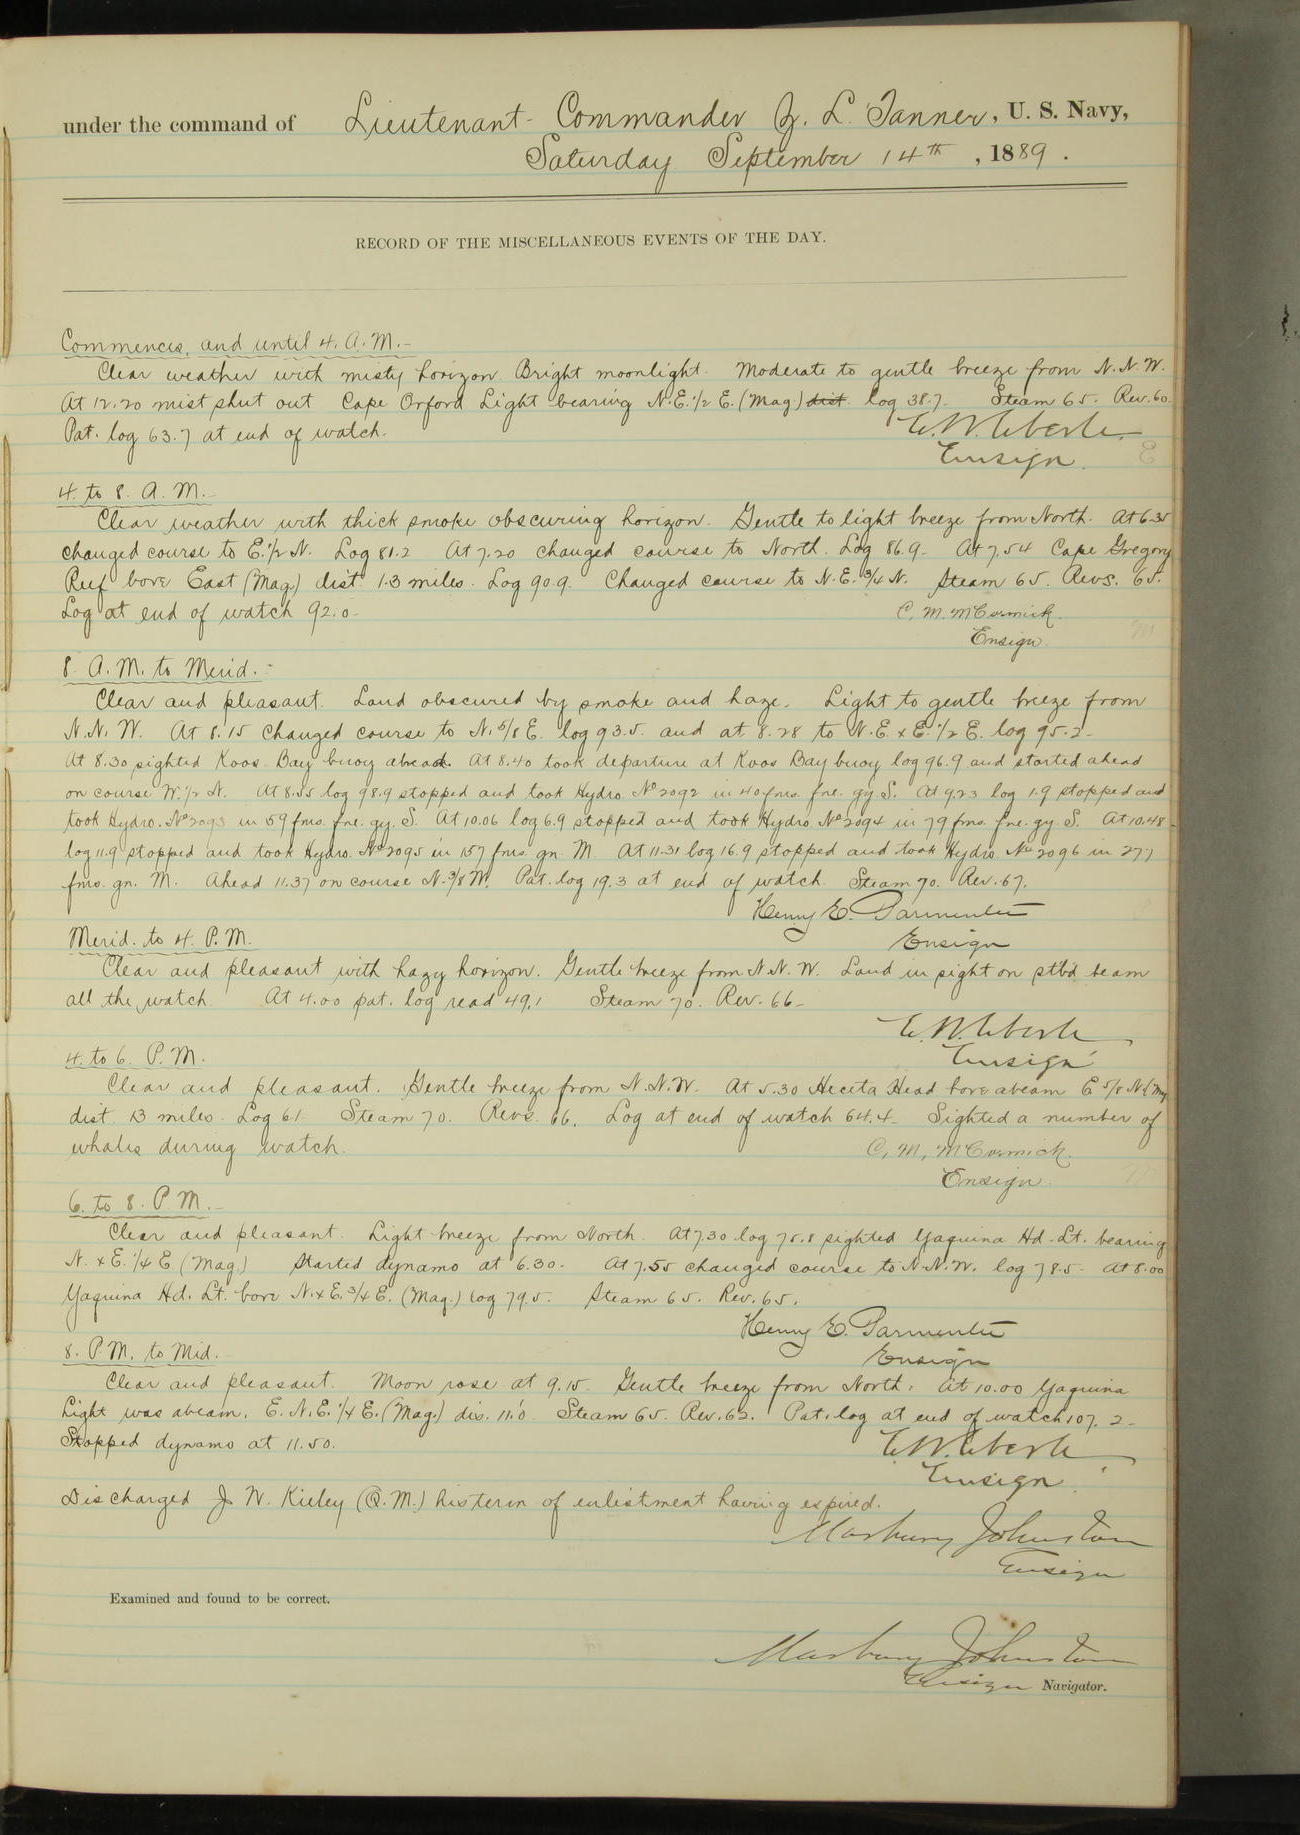 under the command of Lieutenant-Commander Z. L. Tanner, U. S. Navy,
Saturday September 14th, 1889.
RECORD OF THE MISCELLANEOUS EVENTS OF THE DAY.
Commences, and until 4. A. M.-
Clear weather with misty horizon. Bright moonlight. Moderate to gentle breeze from N.N.W.
At 12.20 mist shut out Cape Orford Light bearing N.E. 1/2 E. (Mag) dist. log 38.7. Steam 65. Rev. 60.
Pat. log 63.7 at end of watch.
E. W. Eberle
Ensign.
4. to 8. A. M.-
Clear weather with thick smoke obscuring horizon. Gentle to light breeze from North. At 6.35
changed course to E. 1/2 N. Log 81.2 At 7.20 changed course to North. Log 86.9. At 7.54 Cape Gregory
Reef bore East (Mag.) dist. 1.3 miles. Log 90.9. Changed course to N.E. 3/4 N. Steam 65. Revs. 65.
Log at end of watch 92.0
C. M. McCormick.
Ensign.
8 A. M. to Merid.-
Clear and pleasant. Land obscured by smoke and haze. Light to gentle breeze from
N.N.W. At 8.15 changed course to N. 5/8 E. log 93.5. and at 8.28 to N.E. x E. 1/2 E. log 95.2-
At 8.30 sighted Koos Bay buoy ahead. At 8.40 took departure at Koos Bay buoy log 96.9 and started ahead
on course W. 1/2 N. At 8.55 log 98.9 stopped and took Hydro. No 2092 in 40 fms. fne. gy. S. At 9.23 log 1.9 stopped and
took Hydro. No 2093 in 59 fms. fne. gy. S. At 10.06 log 6.9 stopped and took Hydro. No 2094 in 79 fms. fne. gy. S. At 10.48
log 11.9 stopped and took Hydro. No 2095 in 157 fms. gn. M. At 11.31 log 16.9 stopped and took Hydro. No 2096 in 277
fms. gn. M. Ahead 11.37 on course N. 3/8 W. Pat. log 19.3 at end of watch. Steam 70. Rev. 67.
Henry E. Parmenter
Ensign
Merid. to 4. P. M.
Clear and pleasant with hazy horizon. Gentle breeze from N.N.W. Land in sight on stbd beam
all the watch. At 4.00 pat. log read 49.1 Steam 70. Rev. 66-
E. W. Eberle
Ensign
4. to 6. P. M.
Clear and pleasant. Gentle breeze from N.N.W. At 5.30 Heceta Head bore abeam E 5/8 N (Mag
dist. 13 miles. Log 61. Steam 70. Revs. 66. Log at end of watch 64.4- Sighted a number of
whales during watch.
C. M. McCormick.
Ensign.
6. to 8. P. M.-
Clear and pleasant. Light breeze from North. At 7.30 log 75.8 sighted Yaquina Hd. Lt. bearing
N. x E. 1/4 E (Mag.) Started dynamo at 6.30. At 7.55 changed course to N.N.W. log 78.5- At 8.00
Yaquina Hd. Lt. bore N. x E. 3/4 E. (Mag.) log 79.5. Steam 65. Rev. 65.
Henry E. Parmenter
Ensign
8. P. M. to Mid.
Clear and pleasant. Moon rose at 9.15. Gentle breeze from North. At 10.00 Yaquina
Light was abeam, E.N.E. 1/4 E. (Mag.) dis. 11.0 Steam 65. Rev. 62. Pat. log at end of watch 107.2-
Stopped dynamo at 11.50.
E. W. Eberle
Ensign.
Discharged J. W. Kieley (Q. M.) his term of enlistment having expired.
Marbury Johnston
Ensign
Examined and found to be correct.
Marbury Johnston
Ensign Navigator.